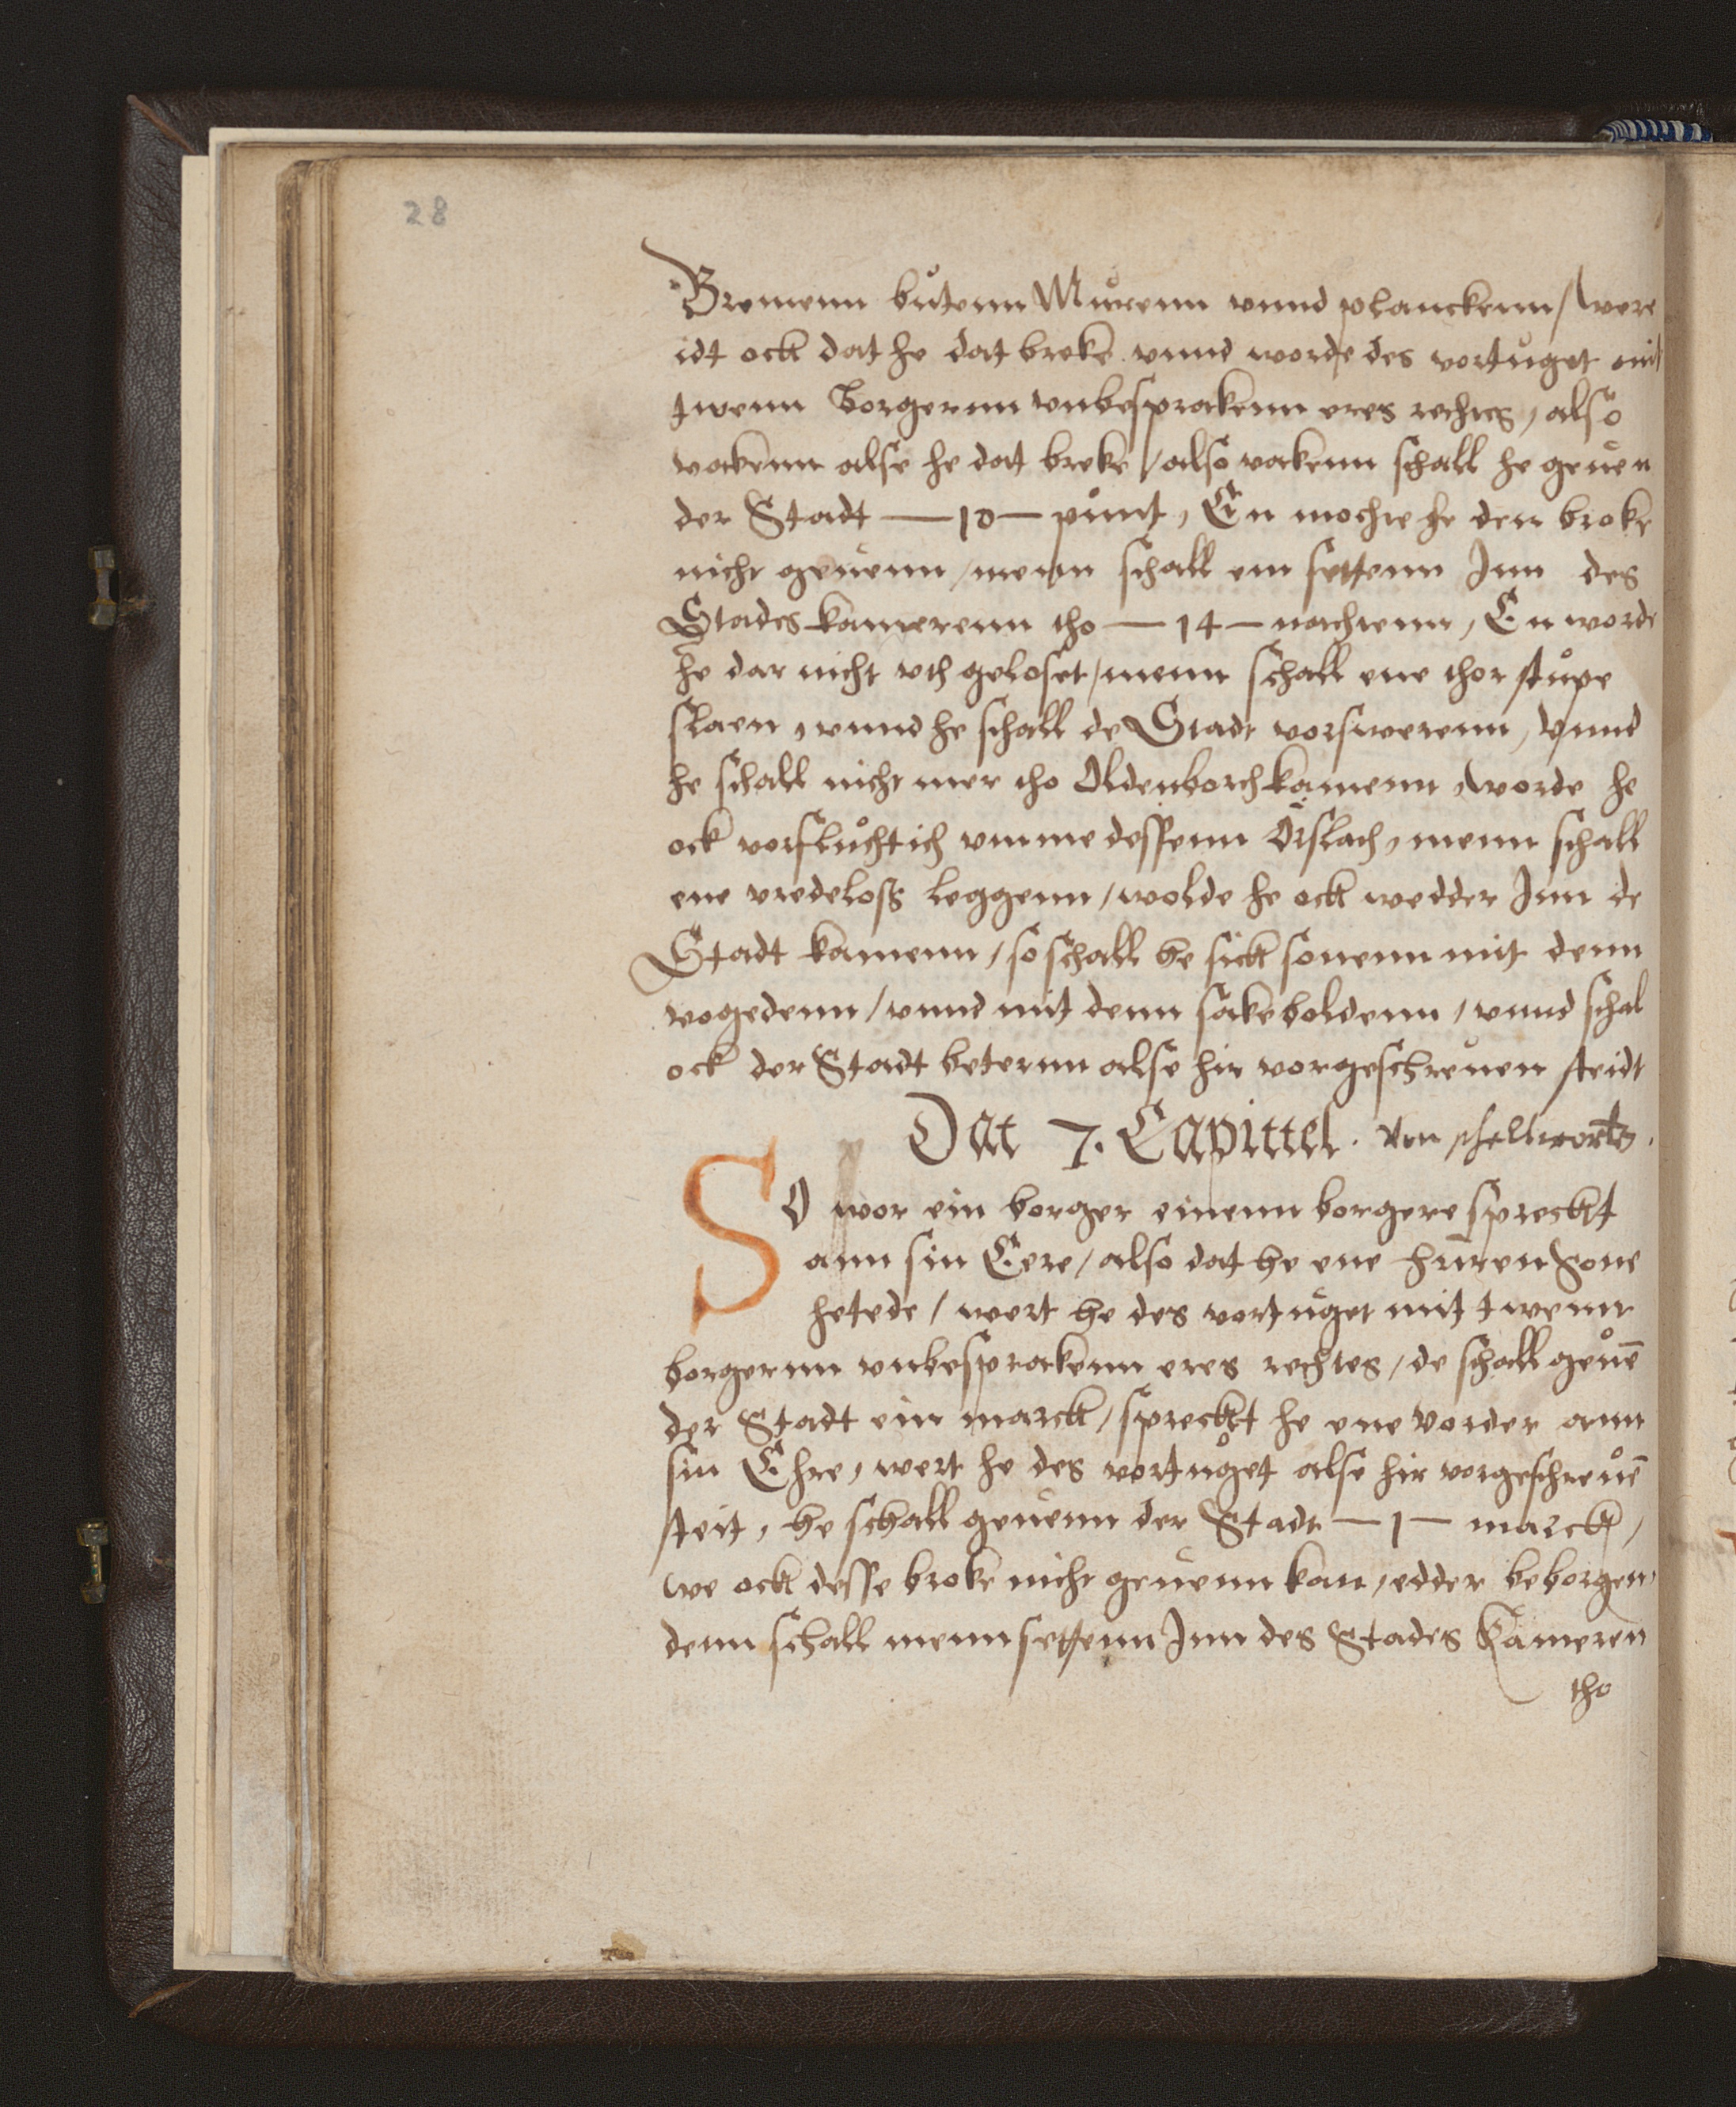 28
Bremenn butenn Muͤrenn vnnd planckenn / were
idt ock dat he dat breke vnnd worde des vortuget mit
twenn Borgernn vnbesprakenn eres rechtes, also
vakenn alse he dat breke / also vakenn schall he geuen
der Stadt — 10 — punt, En mochte he den broke
nicht geuenn / menn schall em settenn Inn des
Stades kamerenn tho — 14 — nachtenn, En worde
he dar nicht vth geloset / menn schall ene thor stupe
slaen, vnnd he schall de Stadt vorswerenn, Vnnd
he schall nicht mer tho Oldenborch kamenn, worde he
ock vorfluchtich vmme dessenn Orslach, menn schall
ene vredeloß leggenn / wolde he ock wedder Inn de
Stadt kamenn / so schall he sick sonenn mit denn
vogedenn / vnnd mit denn sakeboldenn / vnnd schal
ock der Stadt beternn alse hir vorgeschreuen steidt
Dat 7. Capittel. Von schelltworte.
SO wor ein borger einenn borgere spreckt
ann sin Eere / also dat he ene Hurensone
hetede / wert he des vortuget mit twenn
borgernn vnbesprakenn eres rechtes / de schall geuē
der Stadt ein marck / spreckt he ene vorder ann
sin Ehre, wert he des vortuget alse hir vorgeschreuē
steit, he schall geuenn der Stadt — 1 — marck,
we ock desse broke nicht geuenn kan, edder beborgen
denn schall menn settenn Inn des Stades Kameren
tho